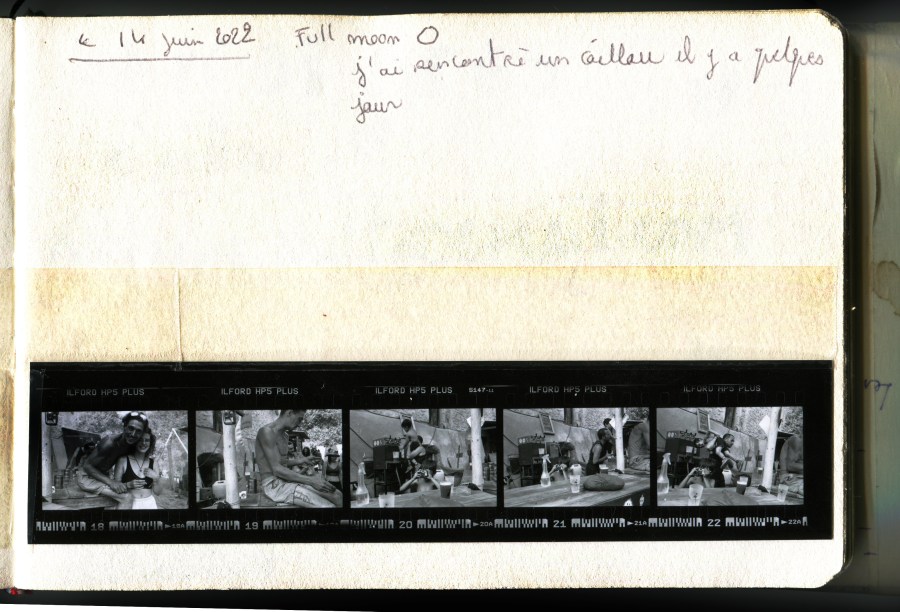 le 14 juin 2022 Full moon O
j'ai rencontré un caillou il y a qelqes
jour
ILFORD HP5 PLUS ILFORD HP5 PLUS ILFORD HP5 PLUS 5147-11 ILFORD HP5 PLUS ILFORD HP5 PLUS
18 ▶18A 19 20 ▶20A 21 ▶21A 22 ▶22A